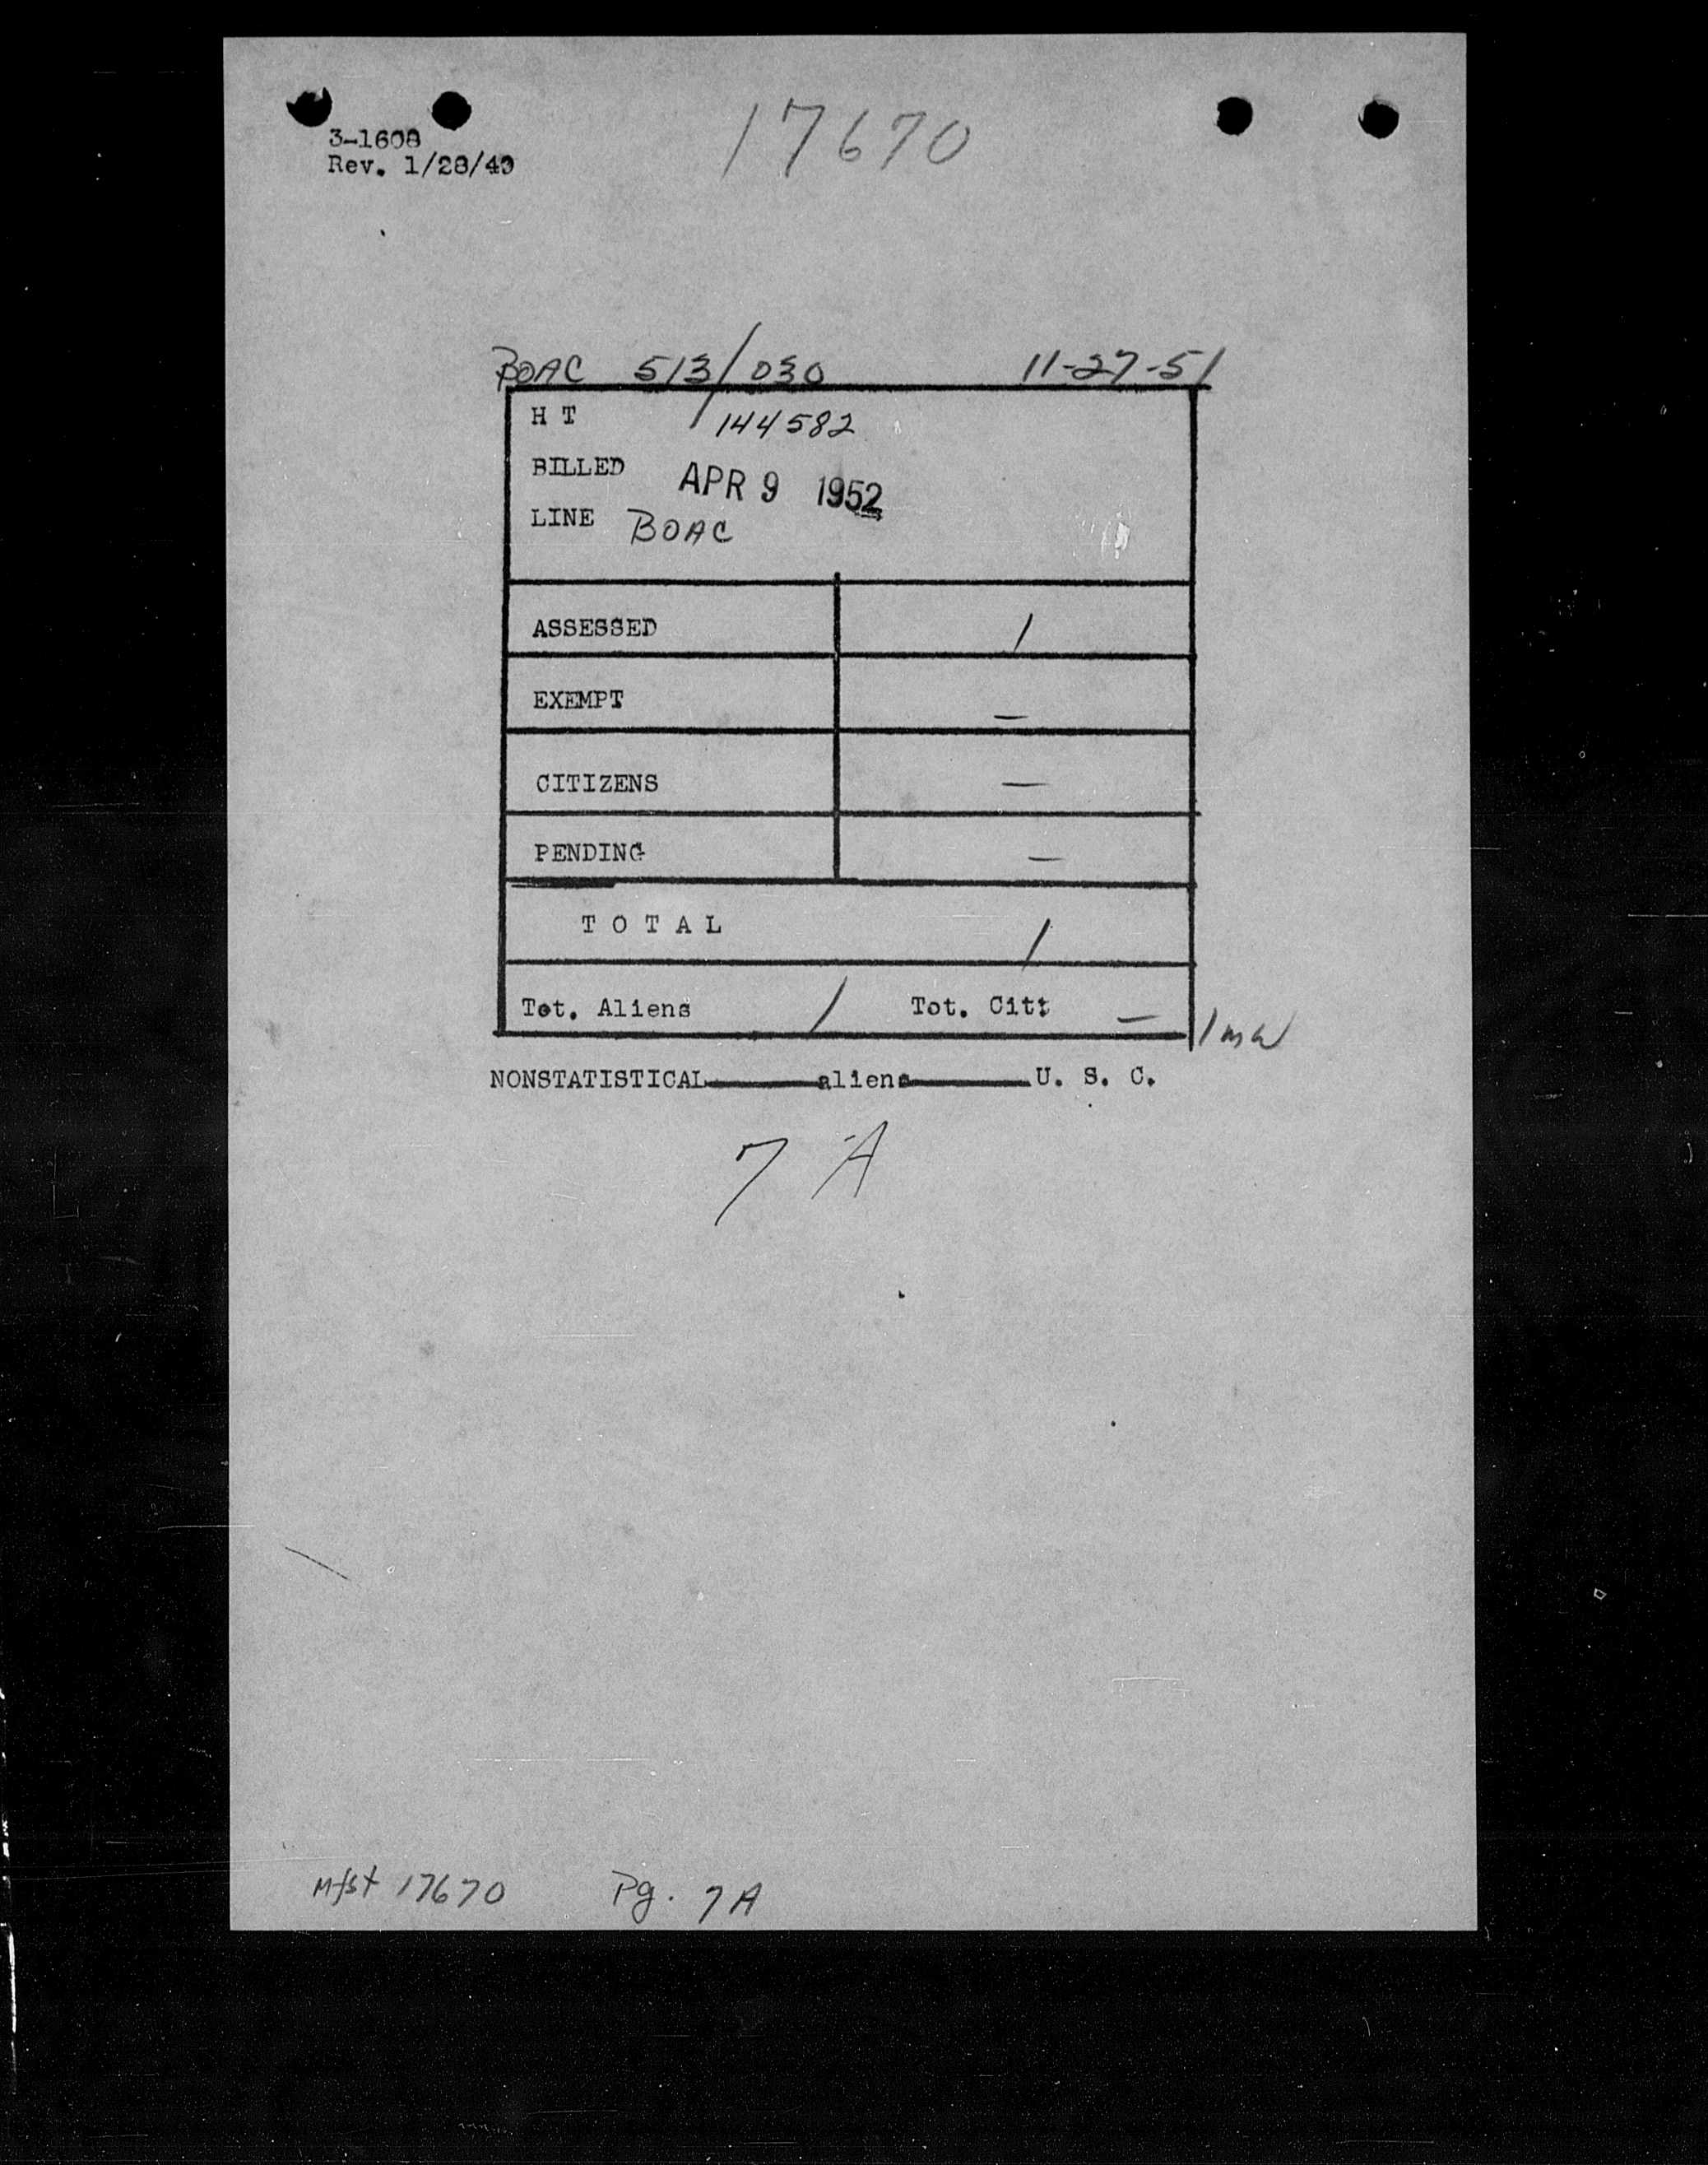 17670
3-1608
Rev. 1/28/49
BOAC 513/030 11-27-51
H T 144582
BILLED APR 9 1952
LINE BOAC
ASSESSED 1
EXEMPT —
CITIZENS —
PENDING —
T O T A L 1
Tot. Aliens 1 Tot. Citt — 1 mw
NONSTATISTICAL aliens U. S. C.
7 A
Mfst 17670 Pg. 7A